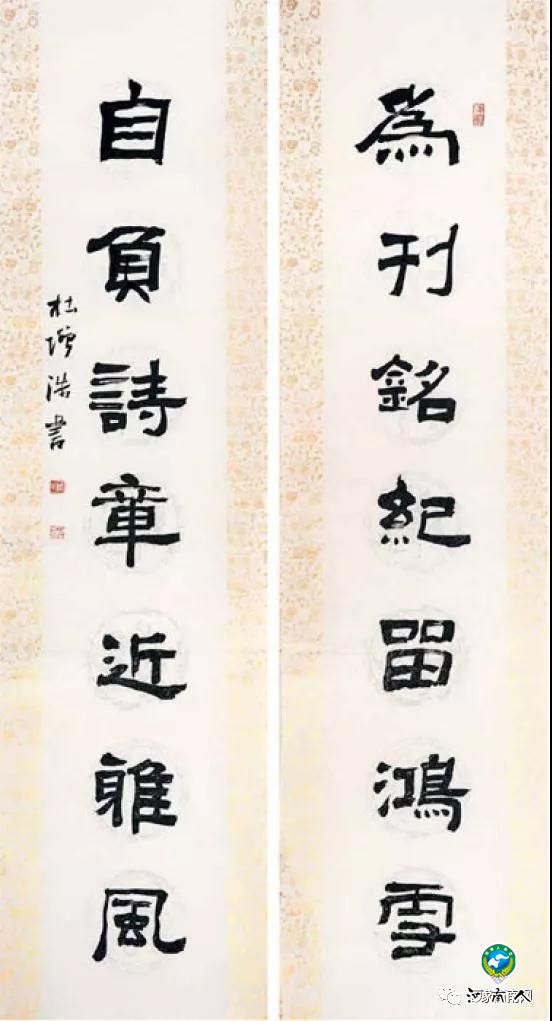 為刊銘紀畱鴻雪
自負詩章近雅風
杜增浩書
河南人